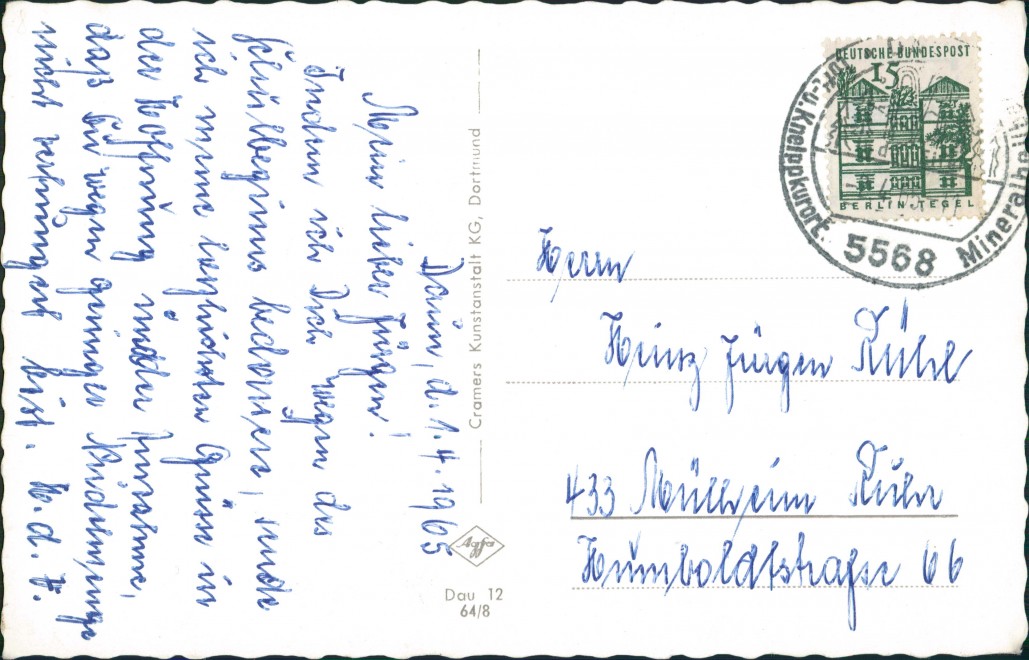 Daun, d. 1.4.1965
Mein lieber Jürgen!
Indem ich Dich wegen des
Schulbeginns bedauere, sende
ich meine herzlichsten Grüße in
der Hoffnung
daß Du wegen
nicht bist. H. d. F.
Cramers Kunstanstalt KG, Dortmund
Agfa
Dau 12
64/8
DEUTSCHE BUNDESPOST
15
BERLIN-TEGEL
-u. Kneippkurort.
5568
Mineralhe
Herrn
Heinz Jürgen Kühl
433 Mülheim Ruhr
Humboldtstraße 66